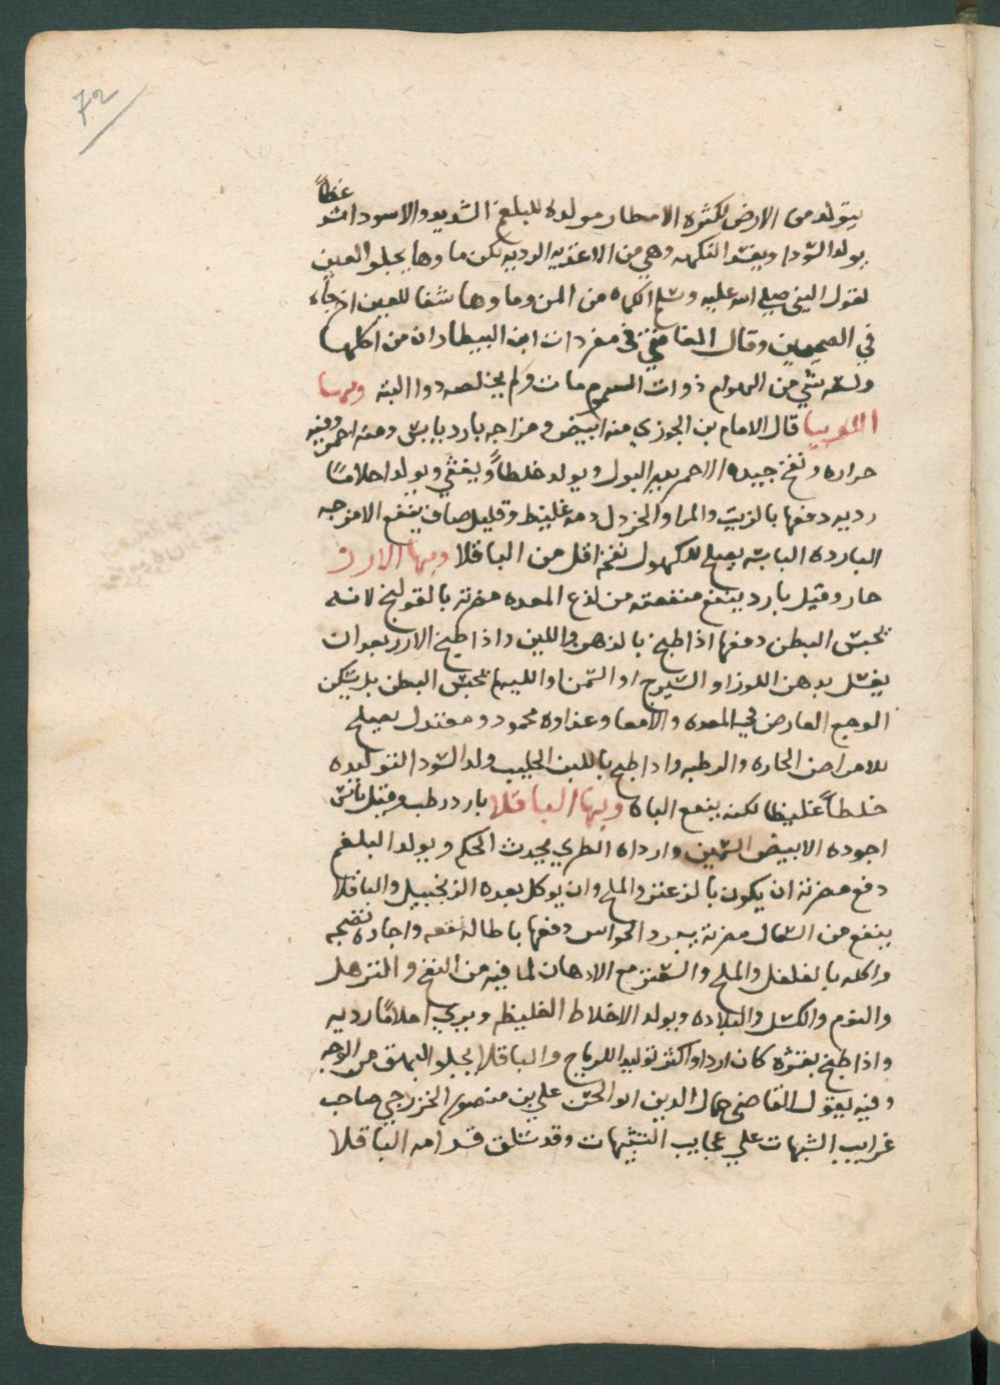 72
غطاً
يتولد من الارض لكثره الامطار مولده للبلغم الشديد والاسود اشد
يولد السودا ويفسد النكهه وهي من الاغذيه الرديه لكن ماوها يجلو العين
لقول النبي صلي الله عليه وسلم الكماه من المن وماوها شفا للعين اخرجاه
في الصحيحين وقال الغافقي في مفردات ابن البيطار ان من اكلها
ولسعه شي من الهوام ذوات السموم مات ولم يخلصه دوا البته وبها
اللوبيا قال الامام بن الجوزي منه ابيض ومزاجه بارد يابس ومنه احمر وفيه
حراره ونفخ جيده الاحمر يدر البول ويولد خلطاً ويغثي ويولد احلاماً
رديه دفعها بالزيت والمرا والخردل دمه غليظ وقليل صاف ينفع الامزجه
البارده اليابسه يصلح للكهول نفخه اقل من الباقلا وبها الارز
حار وقيل بارد ينفع منفعته من لذع المعده مضرته بالقولنج لانه
يحبس البطن دفعها اذا طبخ بالدهن واللبن واذا طبخ الارز بعد ان
يغسل بدهن اللوز او الشيرج او السمن او الليه لم يحبس البطن بل يسكن
الوجع العارض في المعده والامعا وغذاوه محمود ومعتدل يصلح
للامراض الحاره والرطبه واذا طبخ باللبن الحليب ولد السودا لتوليده
خلطاً غليظا لكنه ينفع الباه وبها الباقلا بارد رطب وقيل يابس
اجوده الابيض السمين وارداه الطري يحدث الحكه ويولد البلغم
دفع مضرته ان يكون بالزعتر والملح وان يوكل بعده الزنجبيل والباقلا
ينفع من السعال مضرته يبرد الحواس دفعها باطالة نقعه واجاده نضجه
واكله بالفلفل والملح والسعتر مع الادهان لما فيه من النفخ والترهل
والنوم والكسل والبلاده ويولد الاخلاط الغليظه ويري احلاماً رديه
واذا طبخ بقشره كان اردا واكثر توليدا للرياح والباقلا يجلو البهق من الوجه
وفيه يقول القاضي جمال الدين ابو الحسن علي بن منصور الخزرجي صاحب
غرايب الشبهات علي عجايب التشبيهات وقد سلق قدامه الباقلا